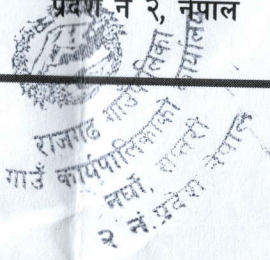 प्रदेश नं २, नेपाल
राजगढ गाउँपालिका
गाउँ कार्यपालिकाको कार्यालय
नघो, सप्तरी
२ नं. प्रदेश नेपाल